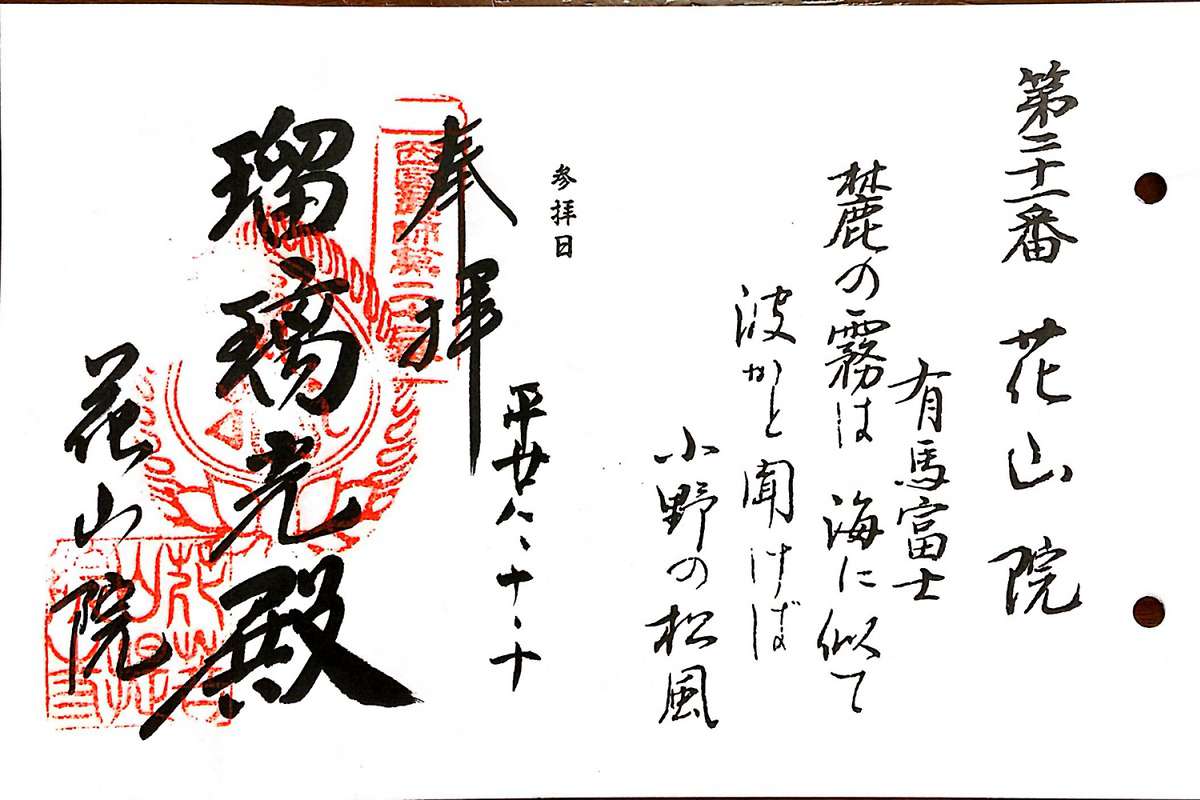 第二十一番 花山院
有馬富士
麓の霧は 海に似て
波かと聞けば
小野の松風
参拝日
平廿八、十、十
奉拝
瑠璃光殿
花山院